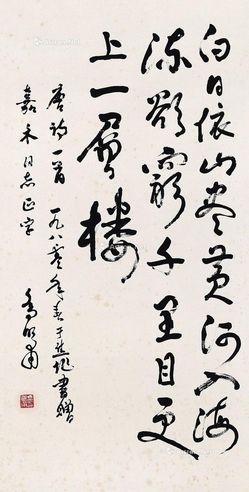 白日依山尽黄河入海
流欲穷千里目更
上一层楼
唐诗一首 一九八〇年春于 书赠
嘉禾同志正字